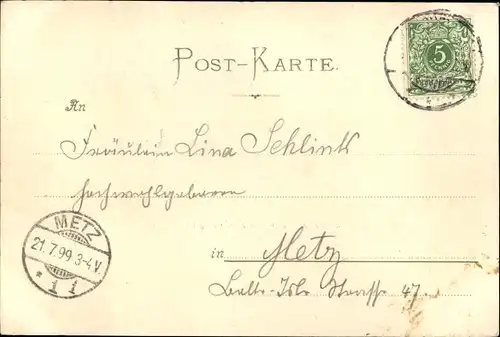 POST-KARTE.
5
An
Fräulein Lina Schlink
Hochwohlgeboren
METZ
21.7.99 3-4.V.
* 1 i
in Metz
Strasse 47.